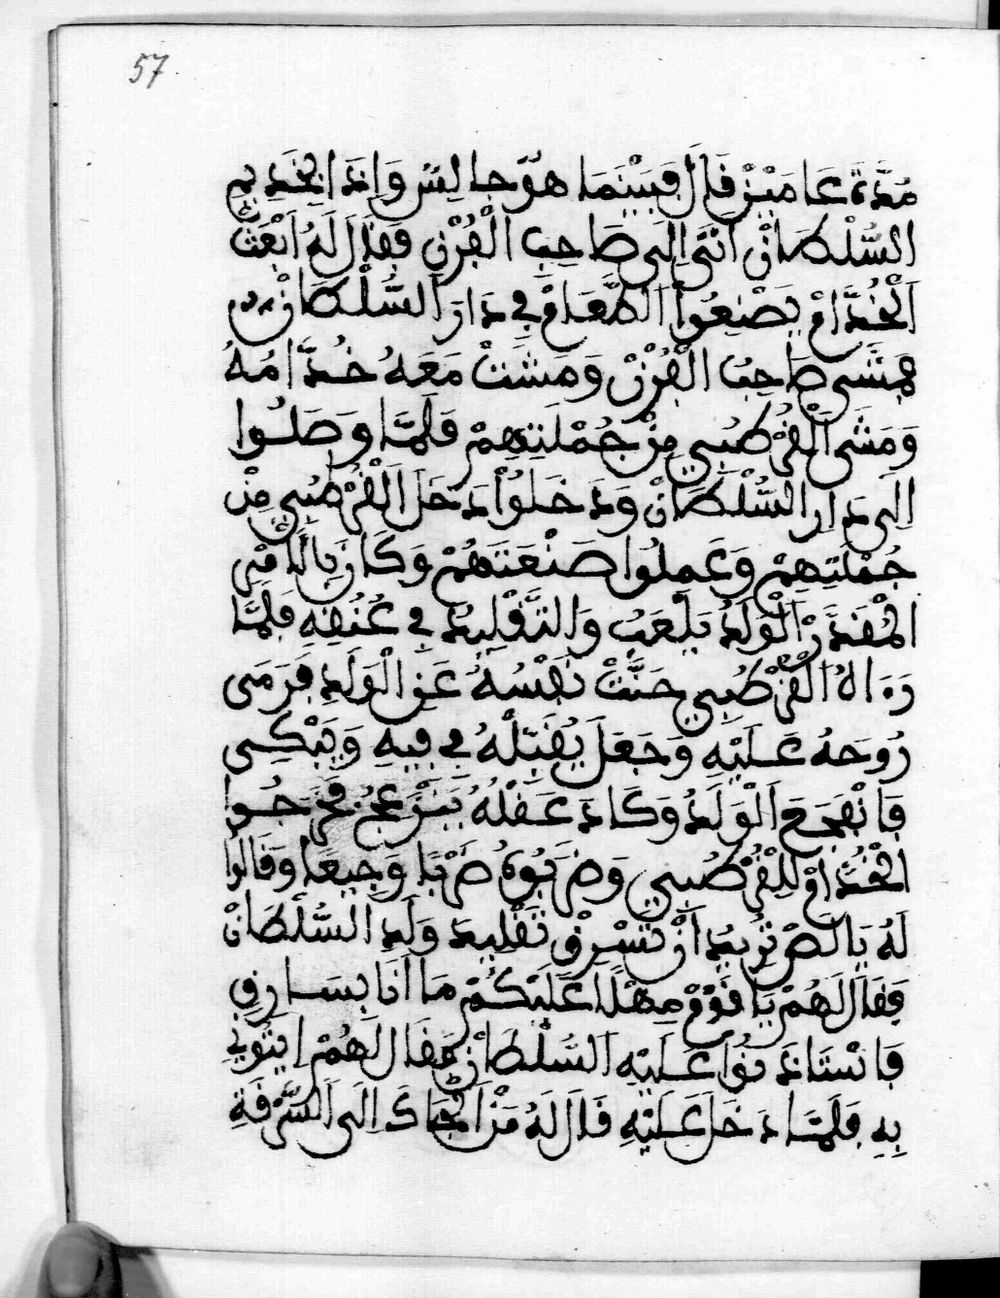 57
مُدَّةَ عَامَيْنِ قَالَ فَبَيْنَمَا هُوَّ جَالِسْ وَإِذَا بِخَدِيمِ
السُّلْطَانْ اَتَى اِلَى صَاحِبْ الْفُرْنِ فَقَالَ لَهُ اَبْعَثْ
اَلْخُدَّامْ يَصْنَعُوا الطَّعَامْ فِي دَارَ السُّلْطَانْ
فَمَشَى صَاحِبْ الْفُرْنْ وَمَشَتْ مَعَهُ خُدَّامُهُ
وَمَشَى اَلْقُرْطُبِي مِنْ جُمْلَتِهِمْ فَلَمَّا وَصَلُوا
اِلَى دَارِ السُّلْطَانْ وَدَخَلُوا دَخَلَ الْقُرْطُبِي مِنْ
جُمْلَتِهِمْ وَعَمِلُوا صَنْعَتَهُمْ وَكَانَ بِالَامْرِ
الْمُقَدَّرْ اَلْوَلَدْ يَلْعَبْ وَالتَّقْلِيدْ فِي عُنُقِهِ فَلَمَّا
رَءَاهُ الْقُرْطُبِي حَنَّتْ نَفْسُهُ عَنِ الْوَلَدِ فَرَمَى
رُوحهُ عَلَيْهِ وَجَعَلَ يُقَبِّلْهُ فِي فِيهِ وَيَبْكِي
فَانْفَجَعَ اَلْوَلَدُ وَكَادَ عَقْلُهُ يَنْزَعِجْ فَخَرَجُوا
الْخُدَّامْ لِلْقُرْطُبِي وَضَرَبُوهُ ضَرْبًا وَجِيعًا وَقَالُوا
لَهُ يَا لَصْ تُرِيدُ اَنْ تَسْرِقْ تَقْلِيدَ وَلَدِ السُّلْطَانْ
فَقَالَ لَهُمْ يَا قَوْمْ مِهْلًا عَلَيْكُمْ مَا اَنَا بِسَارِقِ
فَاسْتَاذَنُوا عَلَيْهِ اَلسُّلْطَانْ فَقَالَ لَهُمْ ايتُونِي
بِهِ فَلَمَّا دَخَلَ عَلَيْهِ قَالَ لَهُ مَنْ اَلْجَاكَ اِلَى السَّرْقَةِ